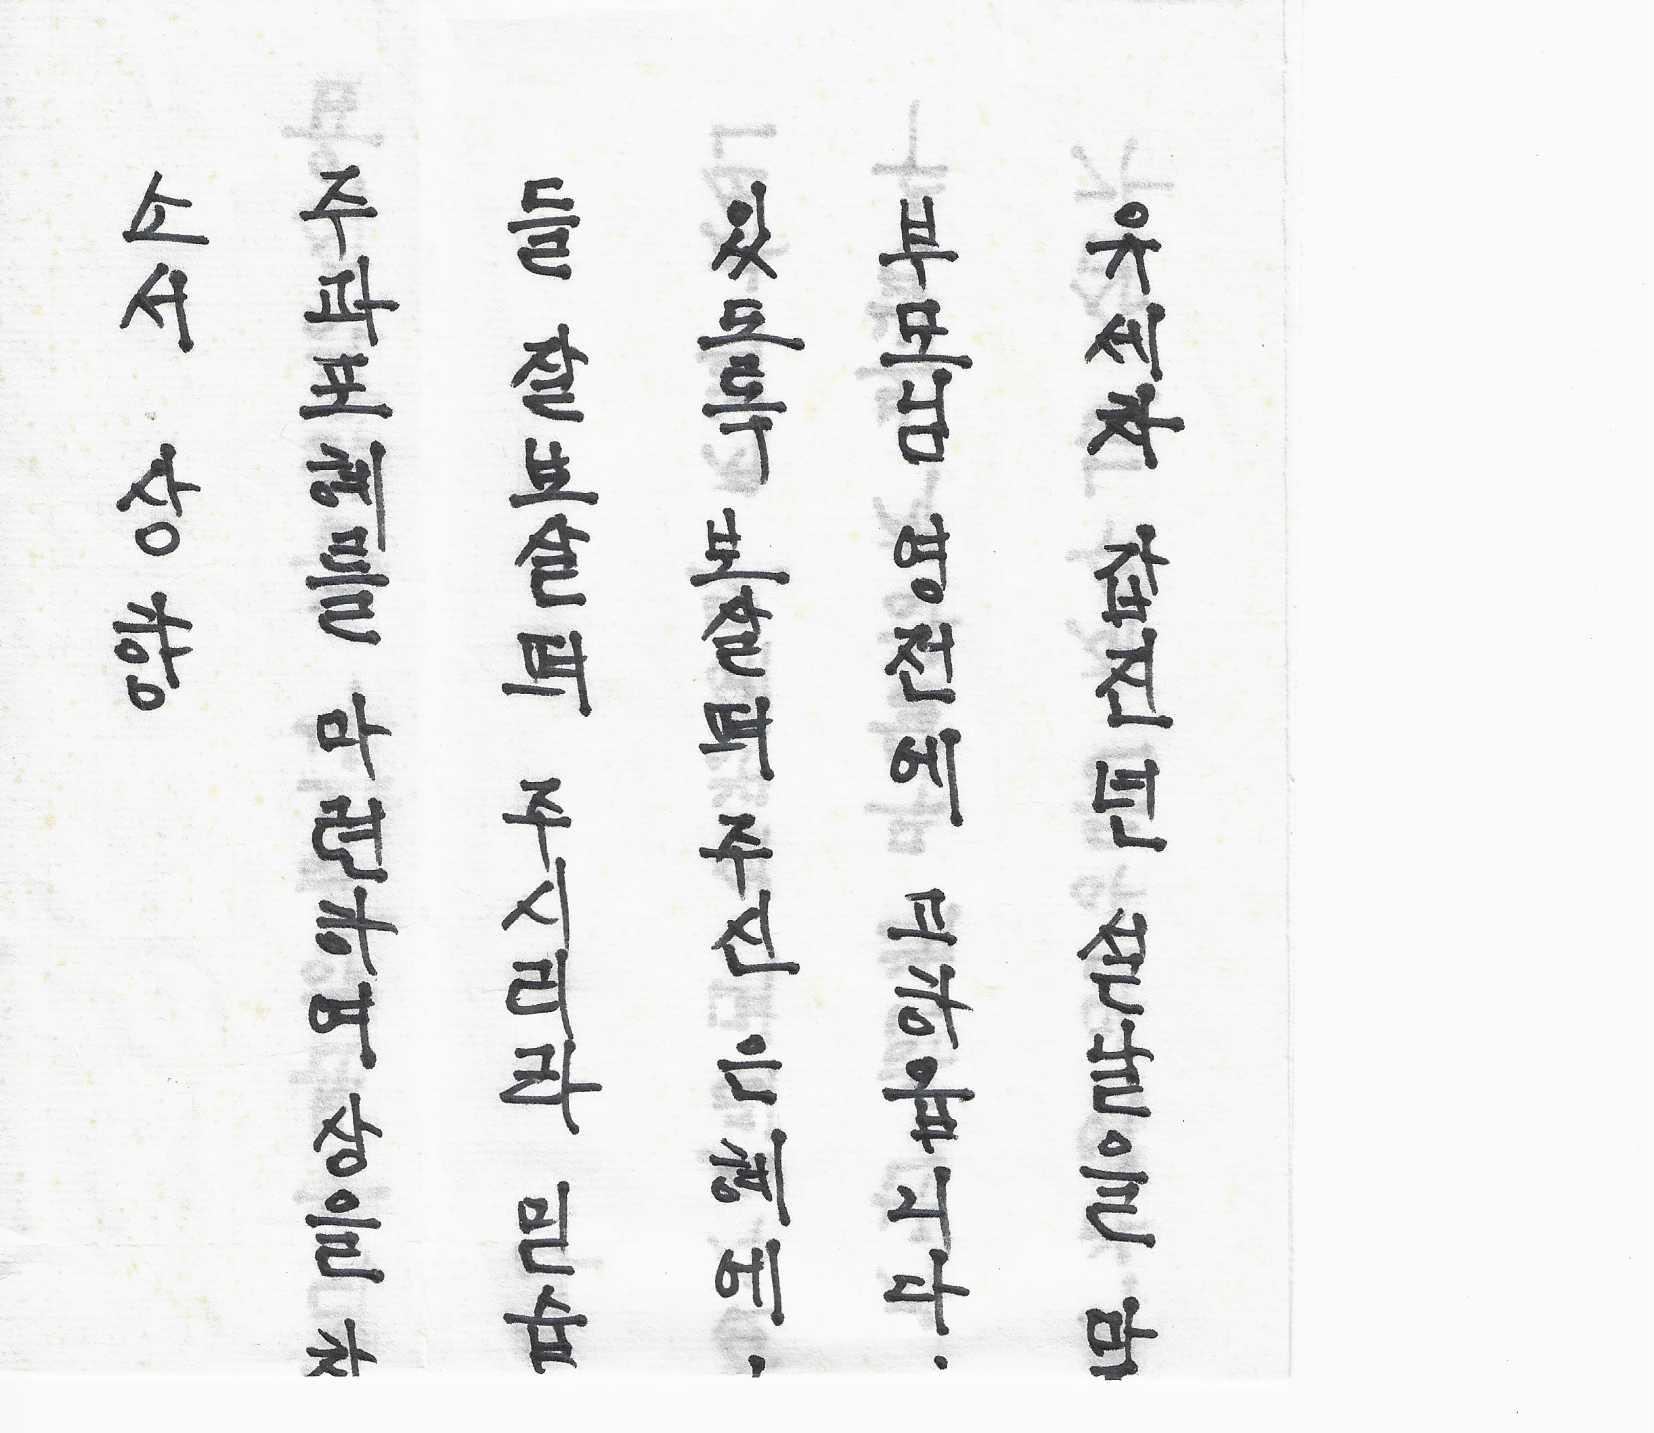 유세차 갑진년 설날을 맞
부모님 영전에 고하옵니다.
있도록 보살펴 주신 은혜에.
들 잘 보살펴 주시리라 믿습
주과포혜를 마련하여 상을 차
소서 상향